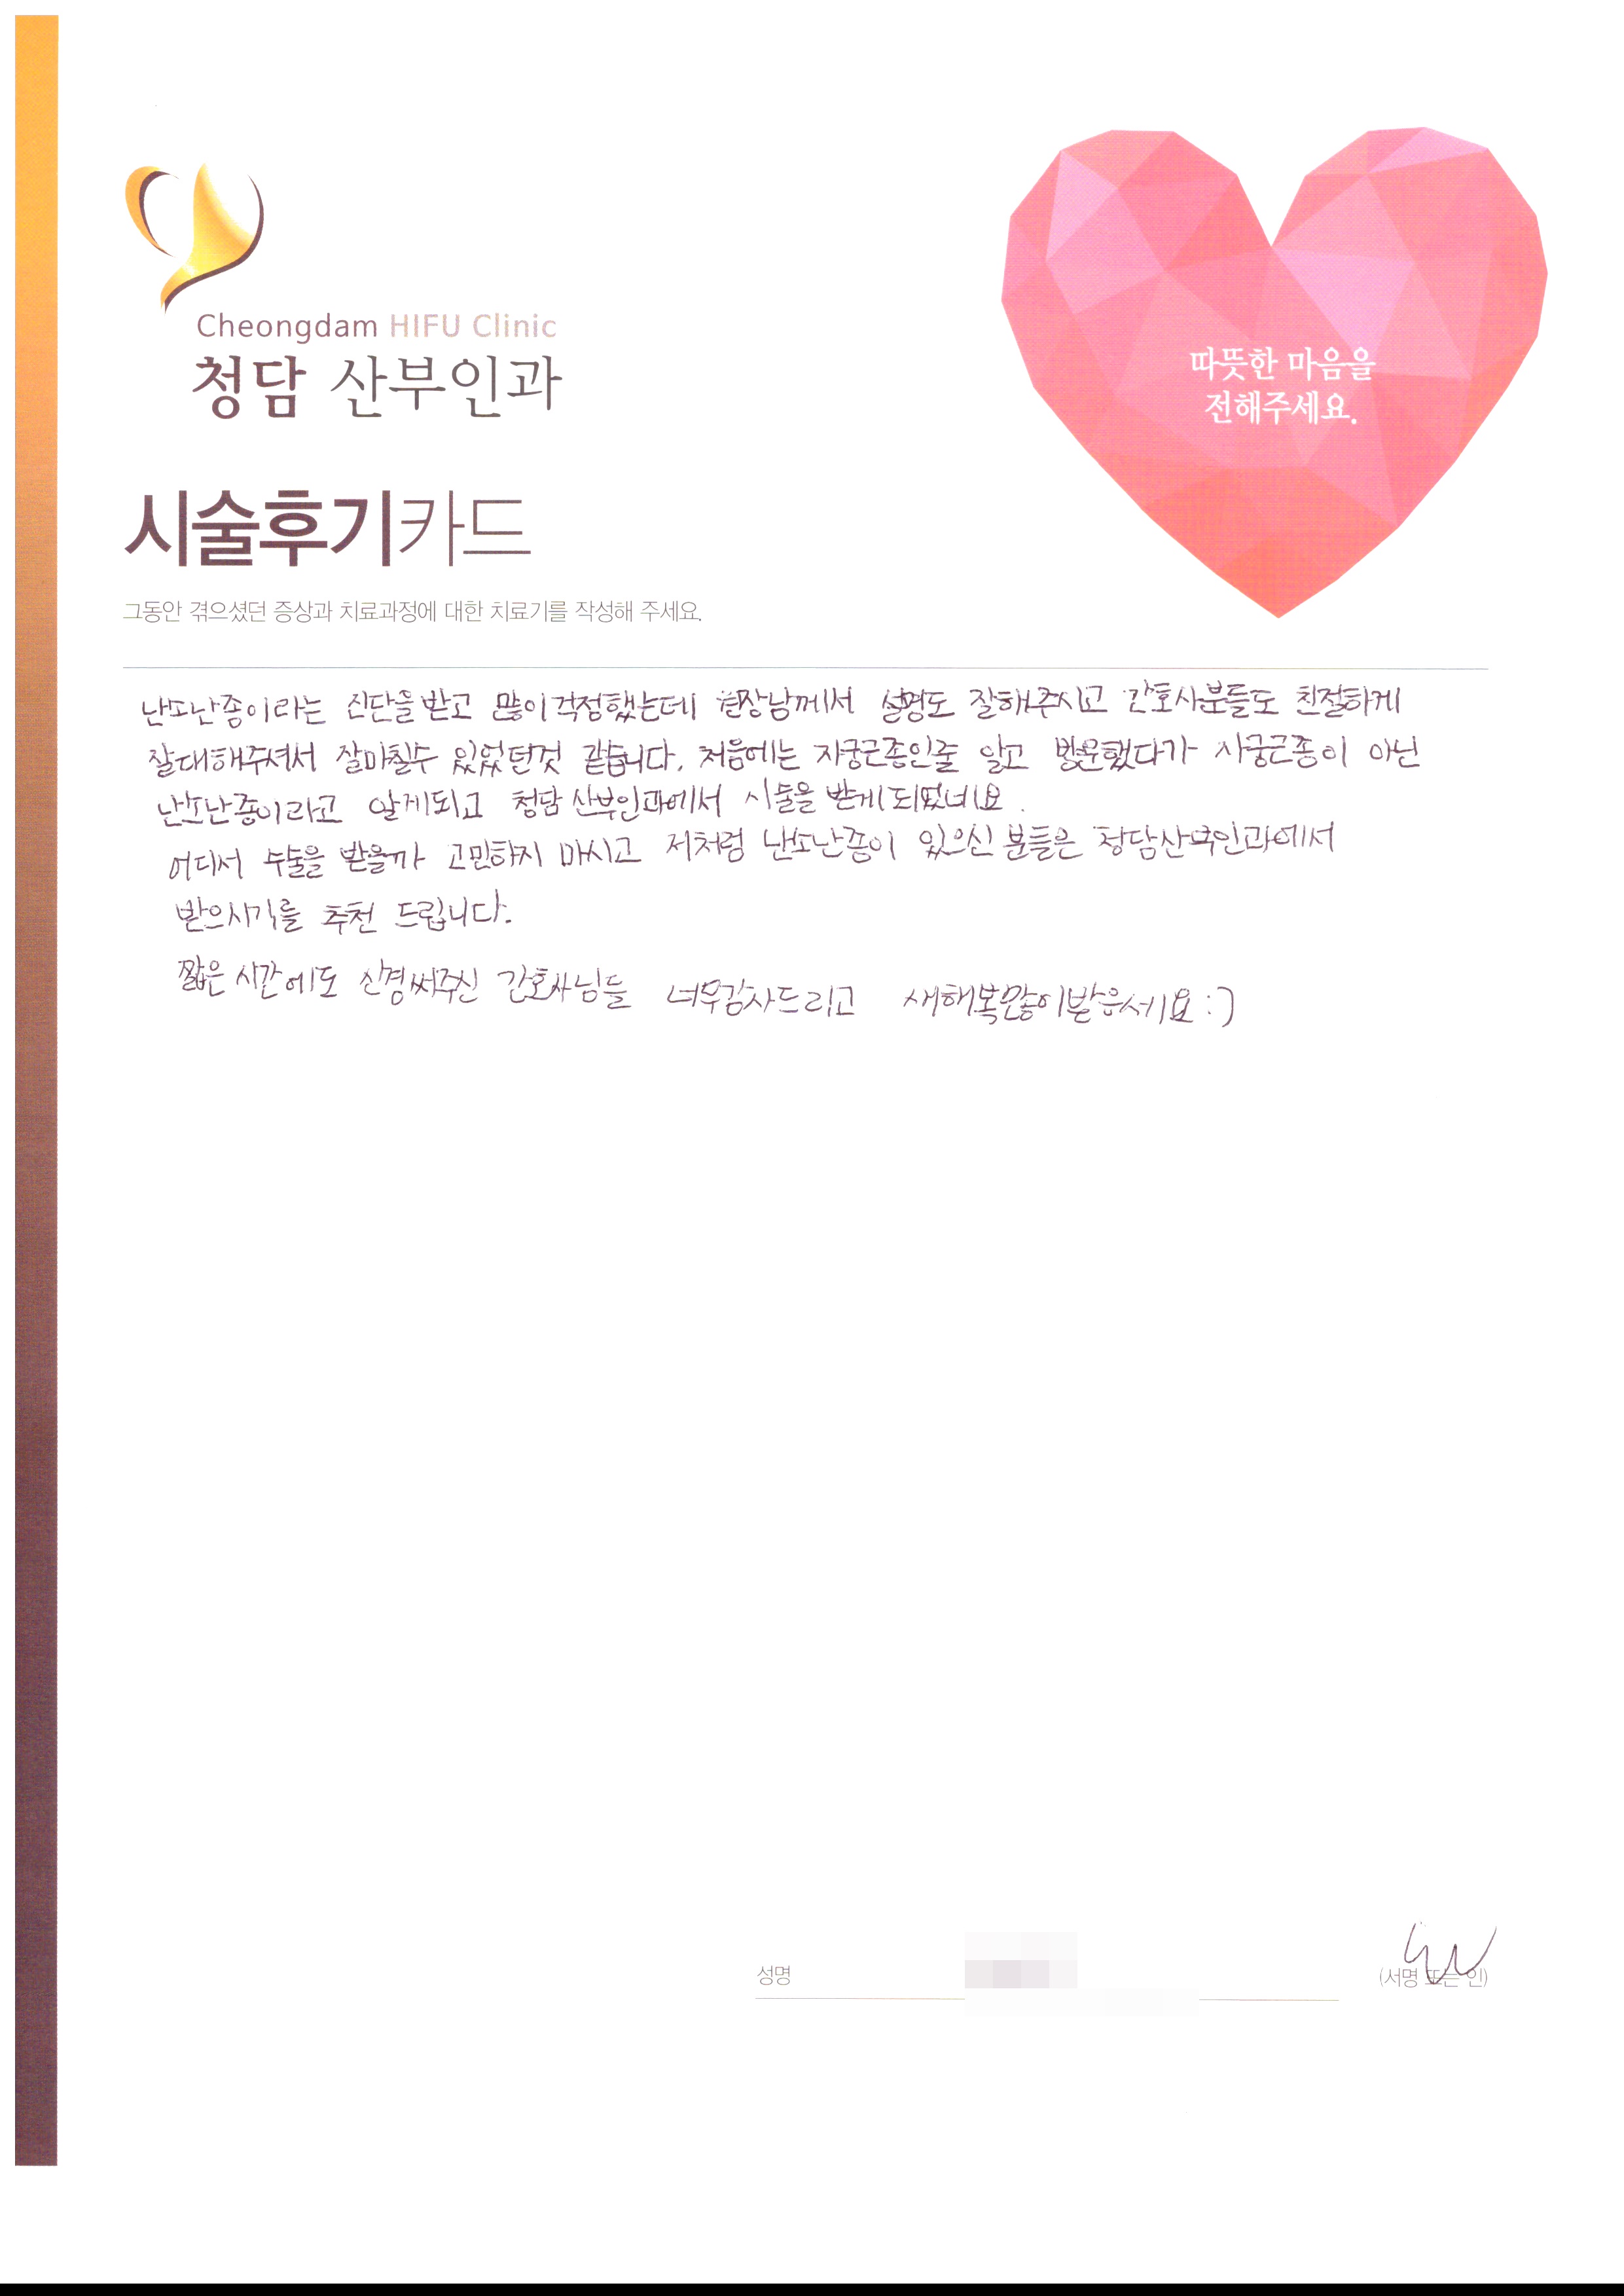 Cheongdam HIFU Clinic
청담 산부인과
따뜻한 마음을
전해주세요.
시술후기카드
그동안 겪으셨던 증상과 치료과정에 대한 치료기를 작성해 주세요.
난소난종이라는 진단을 받고 많이 걱정했는데 원장님께서 설명도 잘해주시고 간호사분들도 친절하게
잘대해주셔서 잘마칠수 있었던것 같습니다. 처음에는 자궁근종인줄 알고 방문했다가 자궁근종이 아닌
난소난종이라고 알게되고 청담 산부인과에서 시술을 받게 되었네요.
어디서 수술을 받을까 고민하지 마시고 저처럼 난소난종이 있으신 분들은 청담산부인과에서
받으시기를 추천 드립니다.
짧은 시간에도 신경써주신 간호사님들 너무감사드리고 새해복많이받으세요 :)
성명
(서명 또는 인)